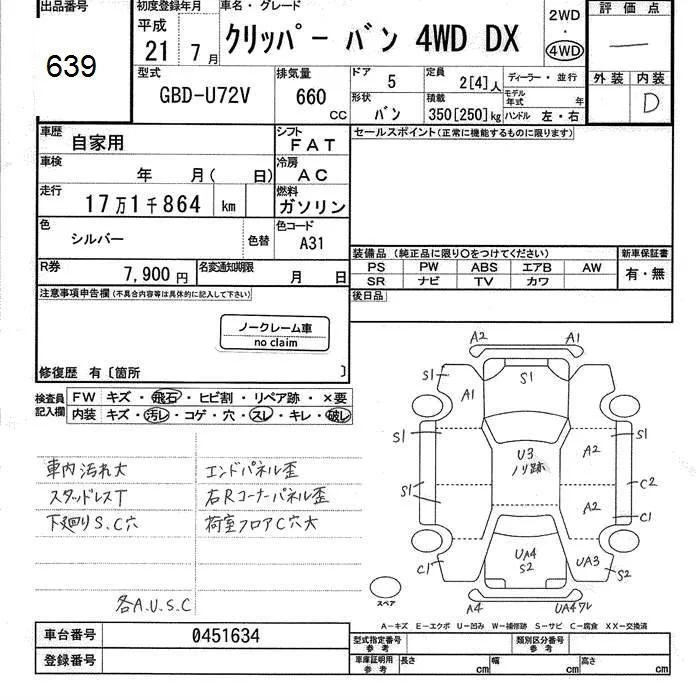 出品番号 初度登録年月 車名・グレード 2WD 評価点
639 平成 クリッパー バン 4WD DX ・
21 7月 4WD —
型式 排気量 ドア 5 定員 2[4]人 ディーラー・並行 外装 内装
GBD-U72V 660 CC 形状 バン 積載 350[250]kg モデル年式 年 D
ハンドル 左・右
車歴 自家用 シフト FAT セールスポイント(正常に機能するものに限ります)
車検 年 月( 日) 冷房 AC
走行 17万1千864 km 燃料 ガソリン
色 シルバー 色替 色コード A31
装備品 (純正品に限り○をつけてください) 新車保証書
R券 7,900円 名変通知期限 月 日 PS PW ABS エアB AW 有・無
SR ナビ TV カワ
注意事項申告欄(不具合内容等は具体的に記入して下さい) 後日品
ノークレーム車
no claim
修復歴 有〔箇所 〕
検査員記入欄 FW キズ・飛石・ヒビ割・リペア跡・×要
内装 キズ・汚れ・コゲ・穴・スレ・キレ・破し
A2 A1
S1 S1
A1
S1 U3 A2 S1
ノリ跡
S1 A2 C2
C1
UA4 UA3
C1 S2 S2
スペア A4 UA4ワレ
車内汚れ大 エンドパネル歪
スタッドレスT 右Rコーナーパネル歪
下廻りS.C穴 荷室フロアC穴大
各A.U.S.C
A-キズ E-エクボ U-凹み W-補修跡 S-サビ C-腐食 XX-交換済
車台番号 0451634 型式指定番号 参考 類別区分番号 参考
登録番号 車庫証明用 参考 長さ cm 幅 cm 高さ cm